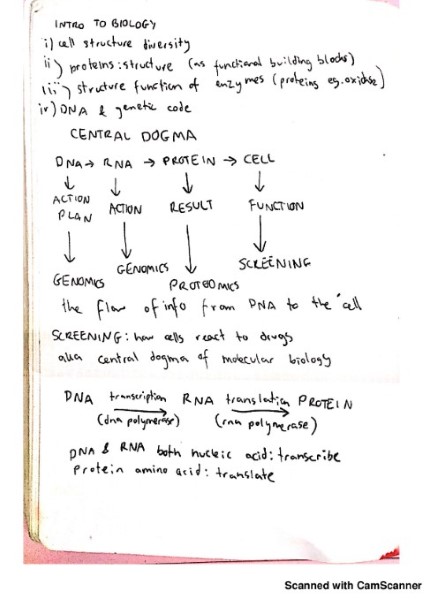 INTRO TO BIOLOGY
i) cell structure diversity
ii) proteins: structure (as functional building blocks)
iii) structure function of enzymes (proteins eg. oxidase)
iv) DNA & genetic code
CENTRAL DOGMA
DNA → RNA → PROTEIN → CELL
ACTION PLAN ACTION RESULT FUNCTION
GENOMICS GENOMICS PROTEOMICS SCREENING
the flow of info from DNA to the cell
SCREENING: how cells react to drugs
aka central dogma of molecular biology
DNA transcription RNA translation PROTEIN
(dna polymerase) (rna polymerase)
DNA & RNA both nucleic acid: transcribe
protein amino acid: translate
Scanned with CamScanner